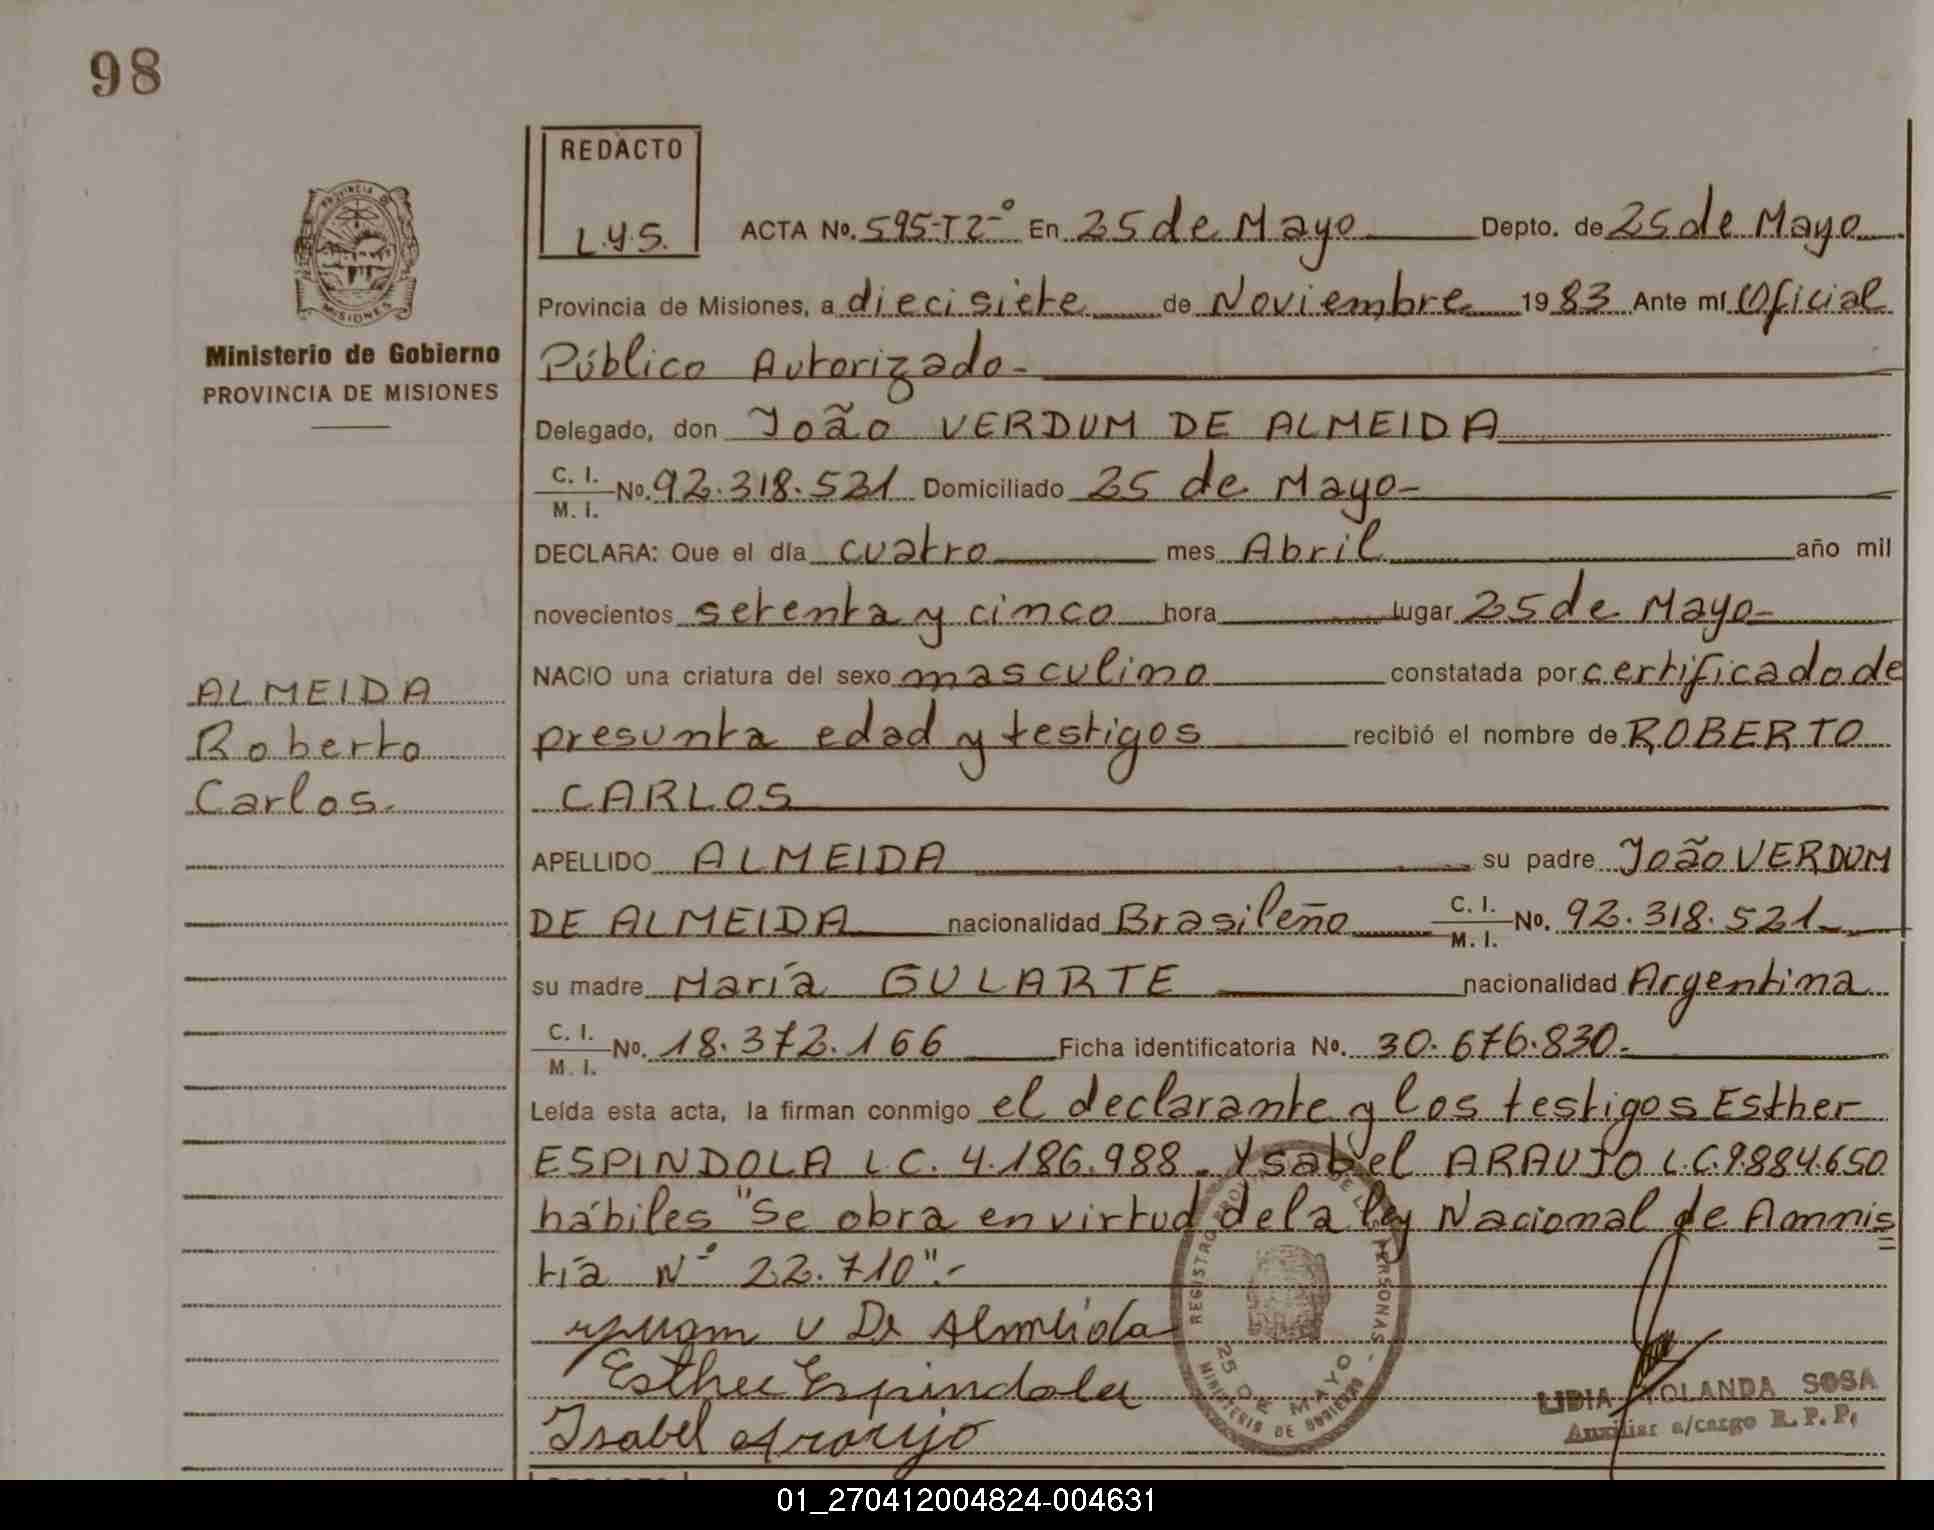 98
REDACTO
L.Y.S.
ACTA Nº. 595-T2-º En 25 de Mayo Depto. de 25 de Mayo
PROVINCIA DE
MISIONES
Ministerio de Gobierno
PROVINCIA DE MISIONES
Provincia de Misiones, a diecisiete de Noviembre 1983 Ante mí Oficial
Público Autorizado-
Delegado, don João VERDUM DE ALMEIDA
C. I.
M. I. Nº. 92.318.521 Domiciliado 25 de Mayo-
DECLARA: Que el día cuatro mes Abril año mil
novecientos setenta y cinco hora lugar 25 de Mayo-
ALMEIDA
Roberto
Carlos.
NACIO una criatura del sexo masculino constatada por certificado de
presunta edad y testigos recibió el nombre de ROBERTO
CARLOS
APELLIDO ALMEIDA su padre João VERDUM
DE ALMEIDA nacionalidad Brasileño C. I. M. I. Nº. 92.318.521-
su madre María GULARTE nacionalidad Argentina
C. I.
M. I. Nº. 18.372.166 Ficha identificatoria Nº. 30.676.830-
Leída esta acta, la firman conmigo el declarante y los testigos Esther
ESPINDOLA L.C. 4.186.988. Ysabel ARAUJO L.C.9.884.650
hábiles "Se obra en virtud de la ley Nacional de Amnis
tía Nº 22.710".-
V De Almeida
Esther Espindola
Isabel Araujo
REGISTRO PROV. DE LAS PERSONAS
25 DE MAYO
MINISTERIO DE GOBIERNO
LIDIA YOLANDA SOSA
Auxiliar a/cargo R. P. P.
01_270412004824-004631